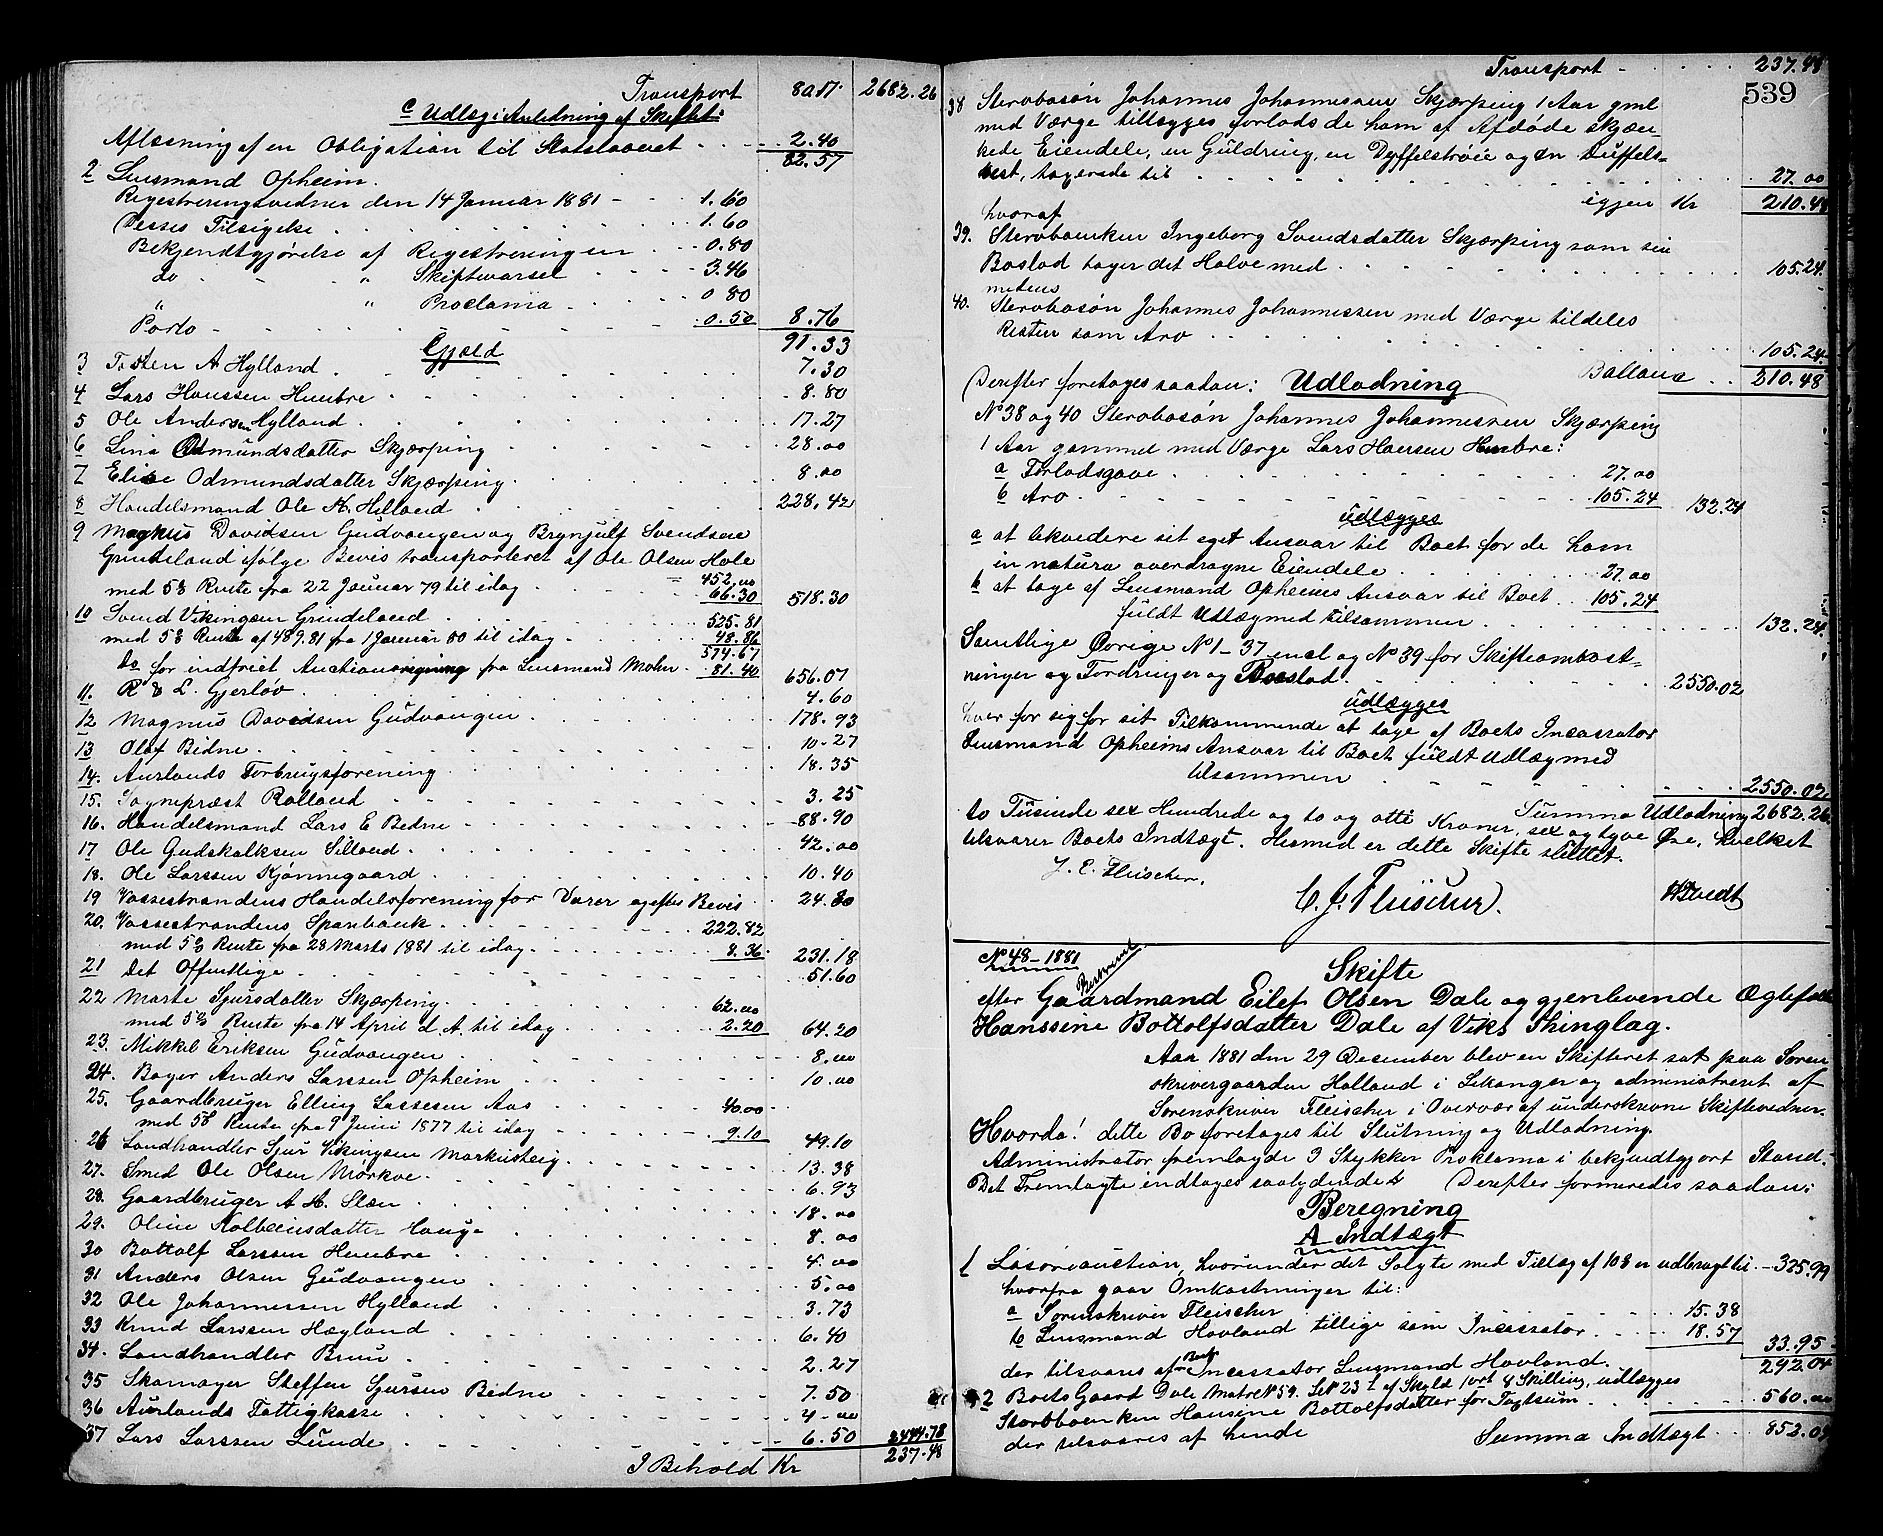 Transport 80.17. 2682.26
c Udlæg i Anledning af Skiftet:
Aflæsning af en Obligation til Statslaanet 2.40
82.57
2 Lensmand Opheim.
Registreringsvidner den 14 Januar 1881 1.60
Disses Tilsigelse 1.60
Bekjendtgjørelse af Registreringen 0.80
do " Skiftevarsel 3.46
" " Proclama 0.80
Porto 0.50 8.76
91.33
Gjæld
3 Tosten A Hylland 7.30
4 Lars Hanssen Humbre 8.80
5 Ole Andersen Hylland 17.27
6 Lina Odmundsdatter Skjærping 28.00
7 Elise Odmundsdatter Skjærping 8.00
8 Handelsmand Ole K. Helland 228,42
9 Magnus Davidsen Gudvangen og Brynjulf Svendsen
Grindeland ifølge Bevis transporteret af Ole Olsen Hole 452.00
med 5% Rente fra 22 Januar 79 til idag 66.30 518.30
10 Svend Vikingsen Grindeland 525.81
med 5% Rente af 489.81 fra 1 Januar 80 til idag 48.86
574.67
Do for indfriet Auctionsregning fra Lensmand Mohn 81.40 656.07
11. R & L. Gjerløv 4.60
12 Magnus Davidsen Gudvangen 178.93
13 Olaf Bidne 10.27
14. Aurlands Forbrugsforening 18.35
15. Sognepræst Rolland 3.25
16. Handelsmand Lars E Bidne 88.90
17 Ole Gudskalksen Silland 42.00
18. Ole Larssen Kjønnegaard 10.40
19 Vossestrandens Handelsforening for Varer og efter Bevis 24.80
20. Vossestrandens Sparebank 222.82
med 5% Rente fra 28 Marts 1881 til idag 8.36 231.18
21 Det Offentlige 51.60
22 Marte Sjursdatter Skjærping 62.00
med 5% Rente fra 14 April d. A. til idag 2.20 64.20
23. Mikkel Eriksen Gudvangen 8.00
24. Bager Anders Larssen Opheim 10.00
25. Gaardbruger Elling Lassesen Aas 40.00
med 5% Rente fra 9 Juni 1877 til idag 9.10 49.10
26 Landhandler Sjur Vikingsen Markusteig 13.38
27. Smed Ole Olsen Morkve 6.93
28. Gaardbruger A. H. Slæn 18.00
29. Oline Kolbeinsdatter Hauge 8.00
30 Bottolf Larssen Humbre 4.00
31 Anders Olsen Gudvangen 5.00
32 Ole Johannessen Hylland 3.73
33 Knud Larssen Hægland 6.40
34. Landhandler Bruu 2.27
35 Skomager Steffen Sjursen Bidne 7.50
36 Aurlands Fattigkasse 4.00
37 Lars Larssen Lunde 6.50 2444.78
I Behold Kr 237.48
Transport 237.48
539
38 Sterbosøn Johannes Johannessen Skjærping 1 Aar gml
med Værge tillægges forlods de ham af Afdøde skjæn-
kede Eiendele, en Guldring, en Dyffelstrøie og en Duffels-
vest, taxerede til 27.00
igjen Kr 210.48
hvoraf
39. Sterboenken Ingeborg Svendsdatter Skjærping som sin
Boslod tager det Halve med 105.24.
medens
40. Sterbosøn Johannes Johannessen med Værge tildeles
Resten som Arv 105.24.
Ballance 210.48
Derefter foretages saadan: Udlodning
No 38 og 40 Sterbosøn Johannes Johannessen Skjærping
1 Aar gammel med Værge Lars Hansen Humbre:
a Forlodsgave 27.00
b Arv 105.24 132.24
udlægges
a at likvidere sit eget Ansvar til Boet for de ham
in natura overdragne Eiendele 27.00
b at tage af Lensmand Opheims Ansvar til Boet 105.24
fuldt Udlæg med tilsammen 132.24.
Samtlige Øvrige No 1-37 incl og No 39 for Skifteomkost-
ninger og Fordringer og Boeslod 2550.02
udlægges
hver for sig for sit Tilkommende at tage af Boets Incassator
Lensmand Opheims Ansvar til Boet fuldt Udlæg med
tilsammen 2550.02
Summa Udlodning 2682.26.
to Tusinde sex Hundrede og to og otti Kroner, sex og tyve Øre, hvilket
tilsvarer Boets Indtægt. Hermed er dette Skifte sluttet.
J. E. Fleischer.
C. J. Fleischer.
No 48-1881
Skifte
efter Gaardmand Eilef Olsen Dale og gjenlevende Ægtefælle
Hanssine Bottolfsdatter Dale af Viks Thinglag.
Aar 1881 den 29 December blev en Skifteret sat paa Soren
skrivergaarden Holland i Leikanger og administreret af
Sorenskriver Fleischer i Overvær af underskrevne Skiftevidner.
Hvorda! dette Bo foretages til Slutning og Udlodning.
Administrator fremlagde 3 Stykker Proklama i bekjendtgjort Stand.
Det Fremlagte indtages saalydende: Derefter formeredes saadan:
Beregning
A Indtægt
1 Løsøreauction, hvorunder det Solgte med Tillæg af 10% er udbragt til 325.99
hvorfra gaar Omkostninger til:
a Sorenskriver Fleischer 15.38
b Lensmand Hovland tillige som Incassator 18.57 33.95
292.04
der tilsvares af Boets Incassator Lensmand Hovland.
2 Boets Gaard Dale Matr No 59. L No 23 af Skyld 1 ort 8 Skilling, udlægges
Sterboenken Hansine Bottolfsdatter for Taxtsum 560.00
der tilsvares af hende Summa Indtægt 852.04